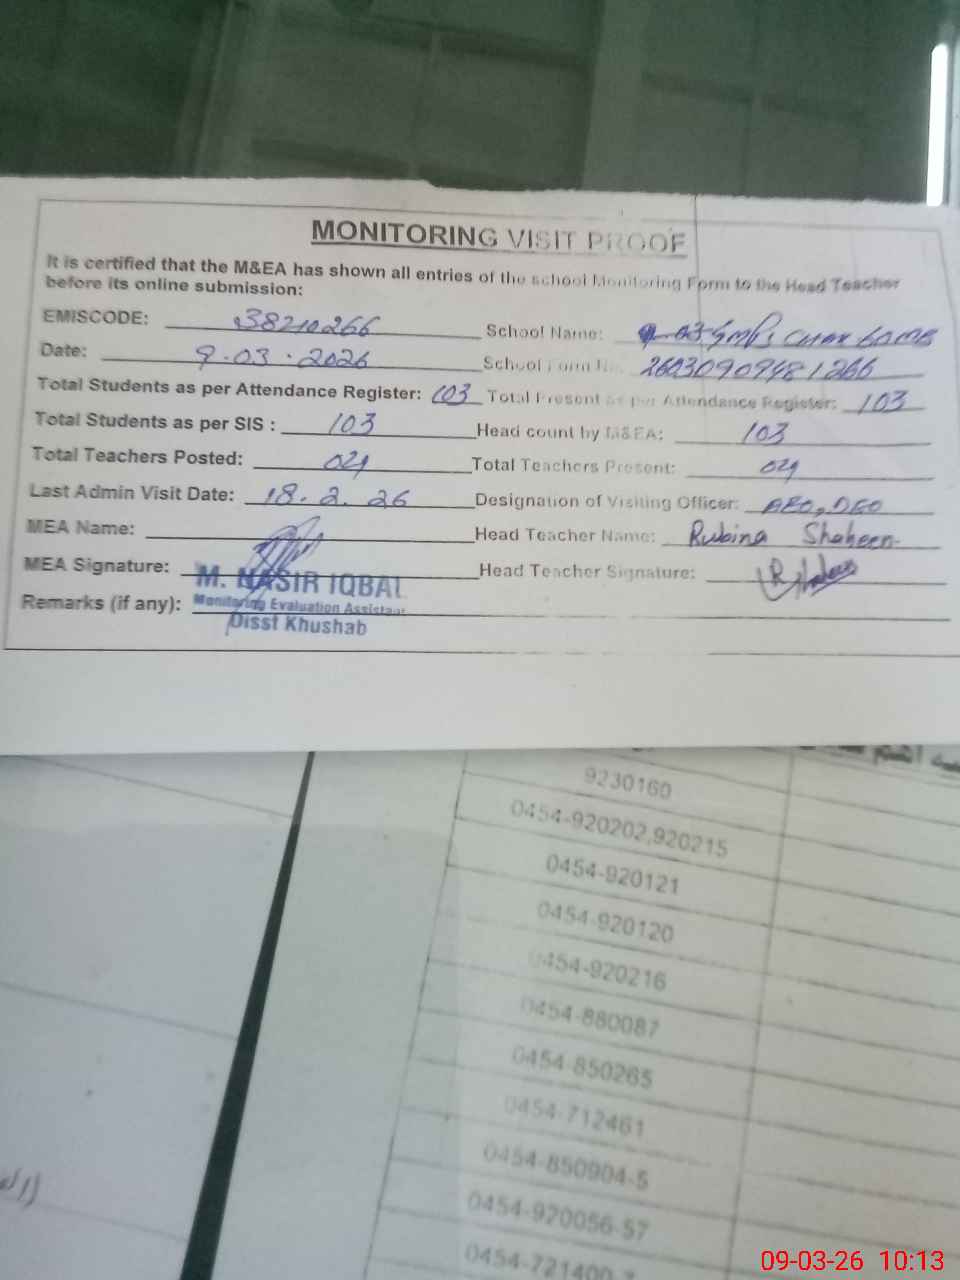 MONITORING VISIT PROOF
It is certified that the M&EA has shown all entries of the school Monitoring Form to the Head Teacher
before its online submission:
EMISCODE: 38210266 School Name: GMPS CHAK 60MB
Date: 9.03.2026 School Form No. 26030909481266
Total Students as per Attendance Register: 103 Total Present as per Attendance Register: 103
Total Students as per SIS : 103 Head count by M&EA: 103
Total Teachers Posted: 04 Total Teachers Present: 04
Last Admin Visit Date: 18.2.26 Designation of Visiting Officer: AEO, DEO
MEA Name: Head Teacher Name: Rubina Shaheen
MEA Signature: Head Teacher Signature:
M. NASIR IQBAL
Remarks (if any): Monitoring Evaluation Assistant
Disst Khushab
9230160
0454-920202,920215
0454-920121
0454-920120
0454-920216
0454-880087
0454-850265
0454-712461
0454-850904-5
0454-920056-57
0454-721400
09-03-26 10:13